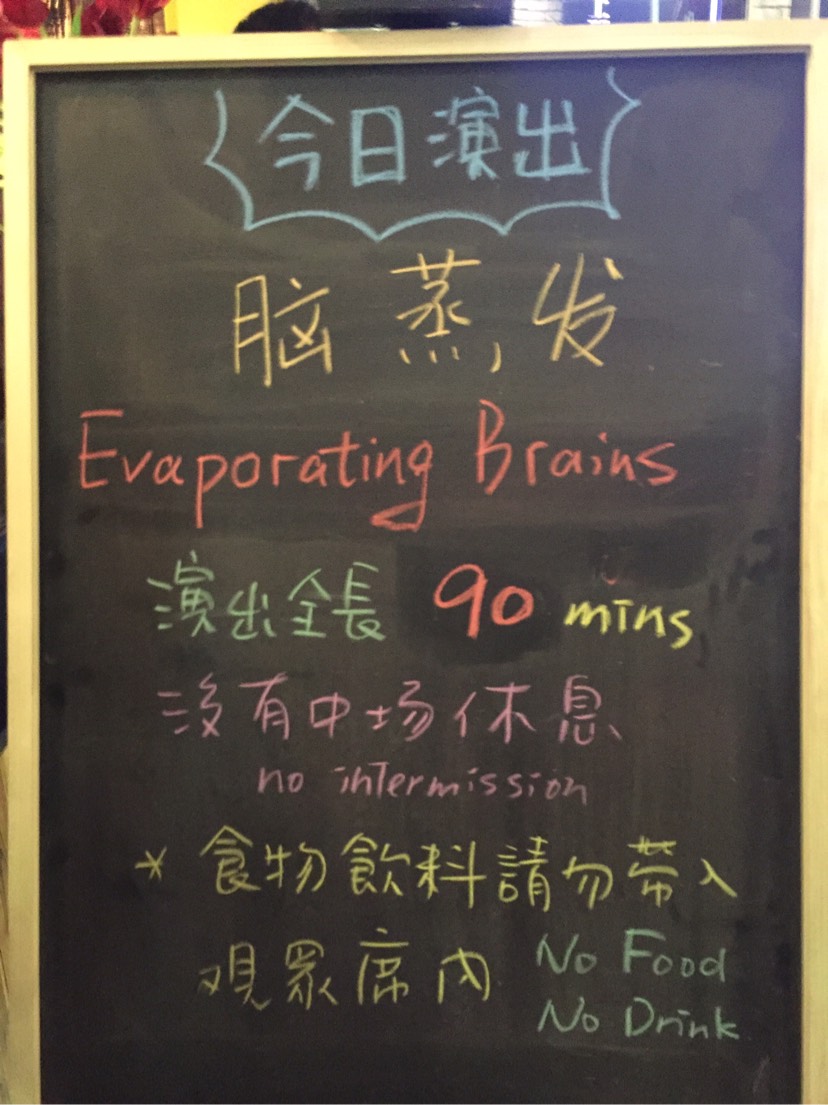 今日演出
脑蒸发
Evaporating Brains
演出全長 90 mins
没有中场休息
no intermission
* 食物飲料請勿帶入
观眾席內 No Food
No Drink